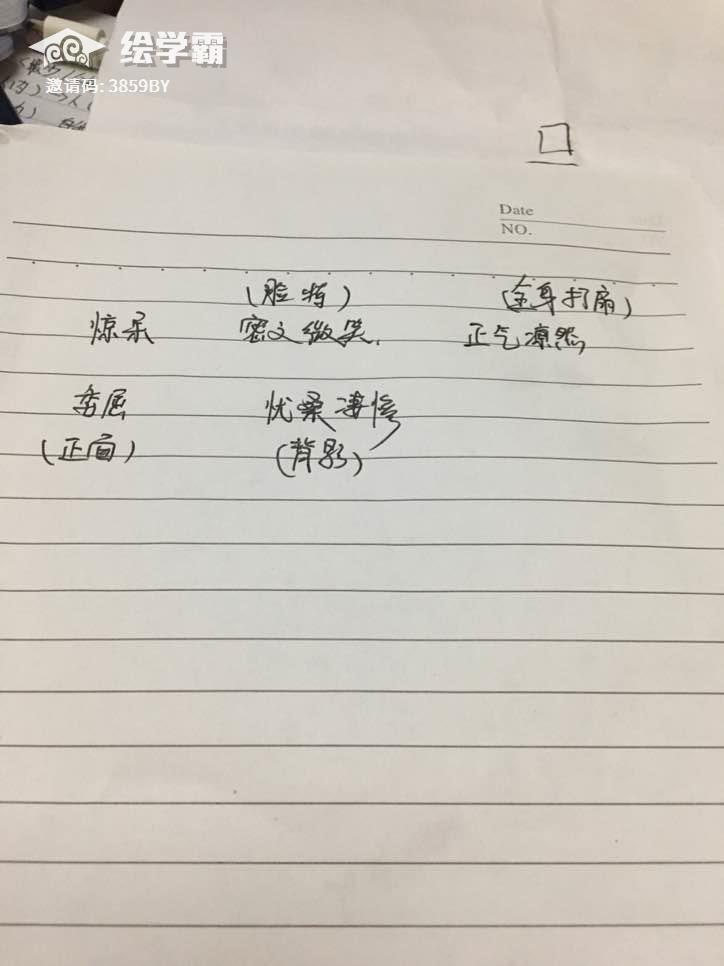 绘学霸
邀请码: 3859BY
Date
NO.
(脸特) (全身打扇)
惊呆 蜜之微笑. 正气凛然
委屈 忧桑凄惨
(正面) (背影)